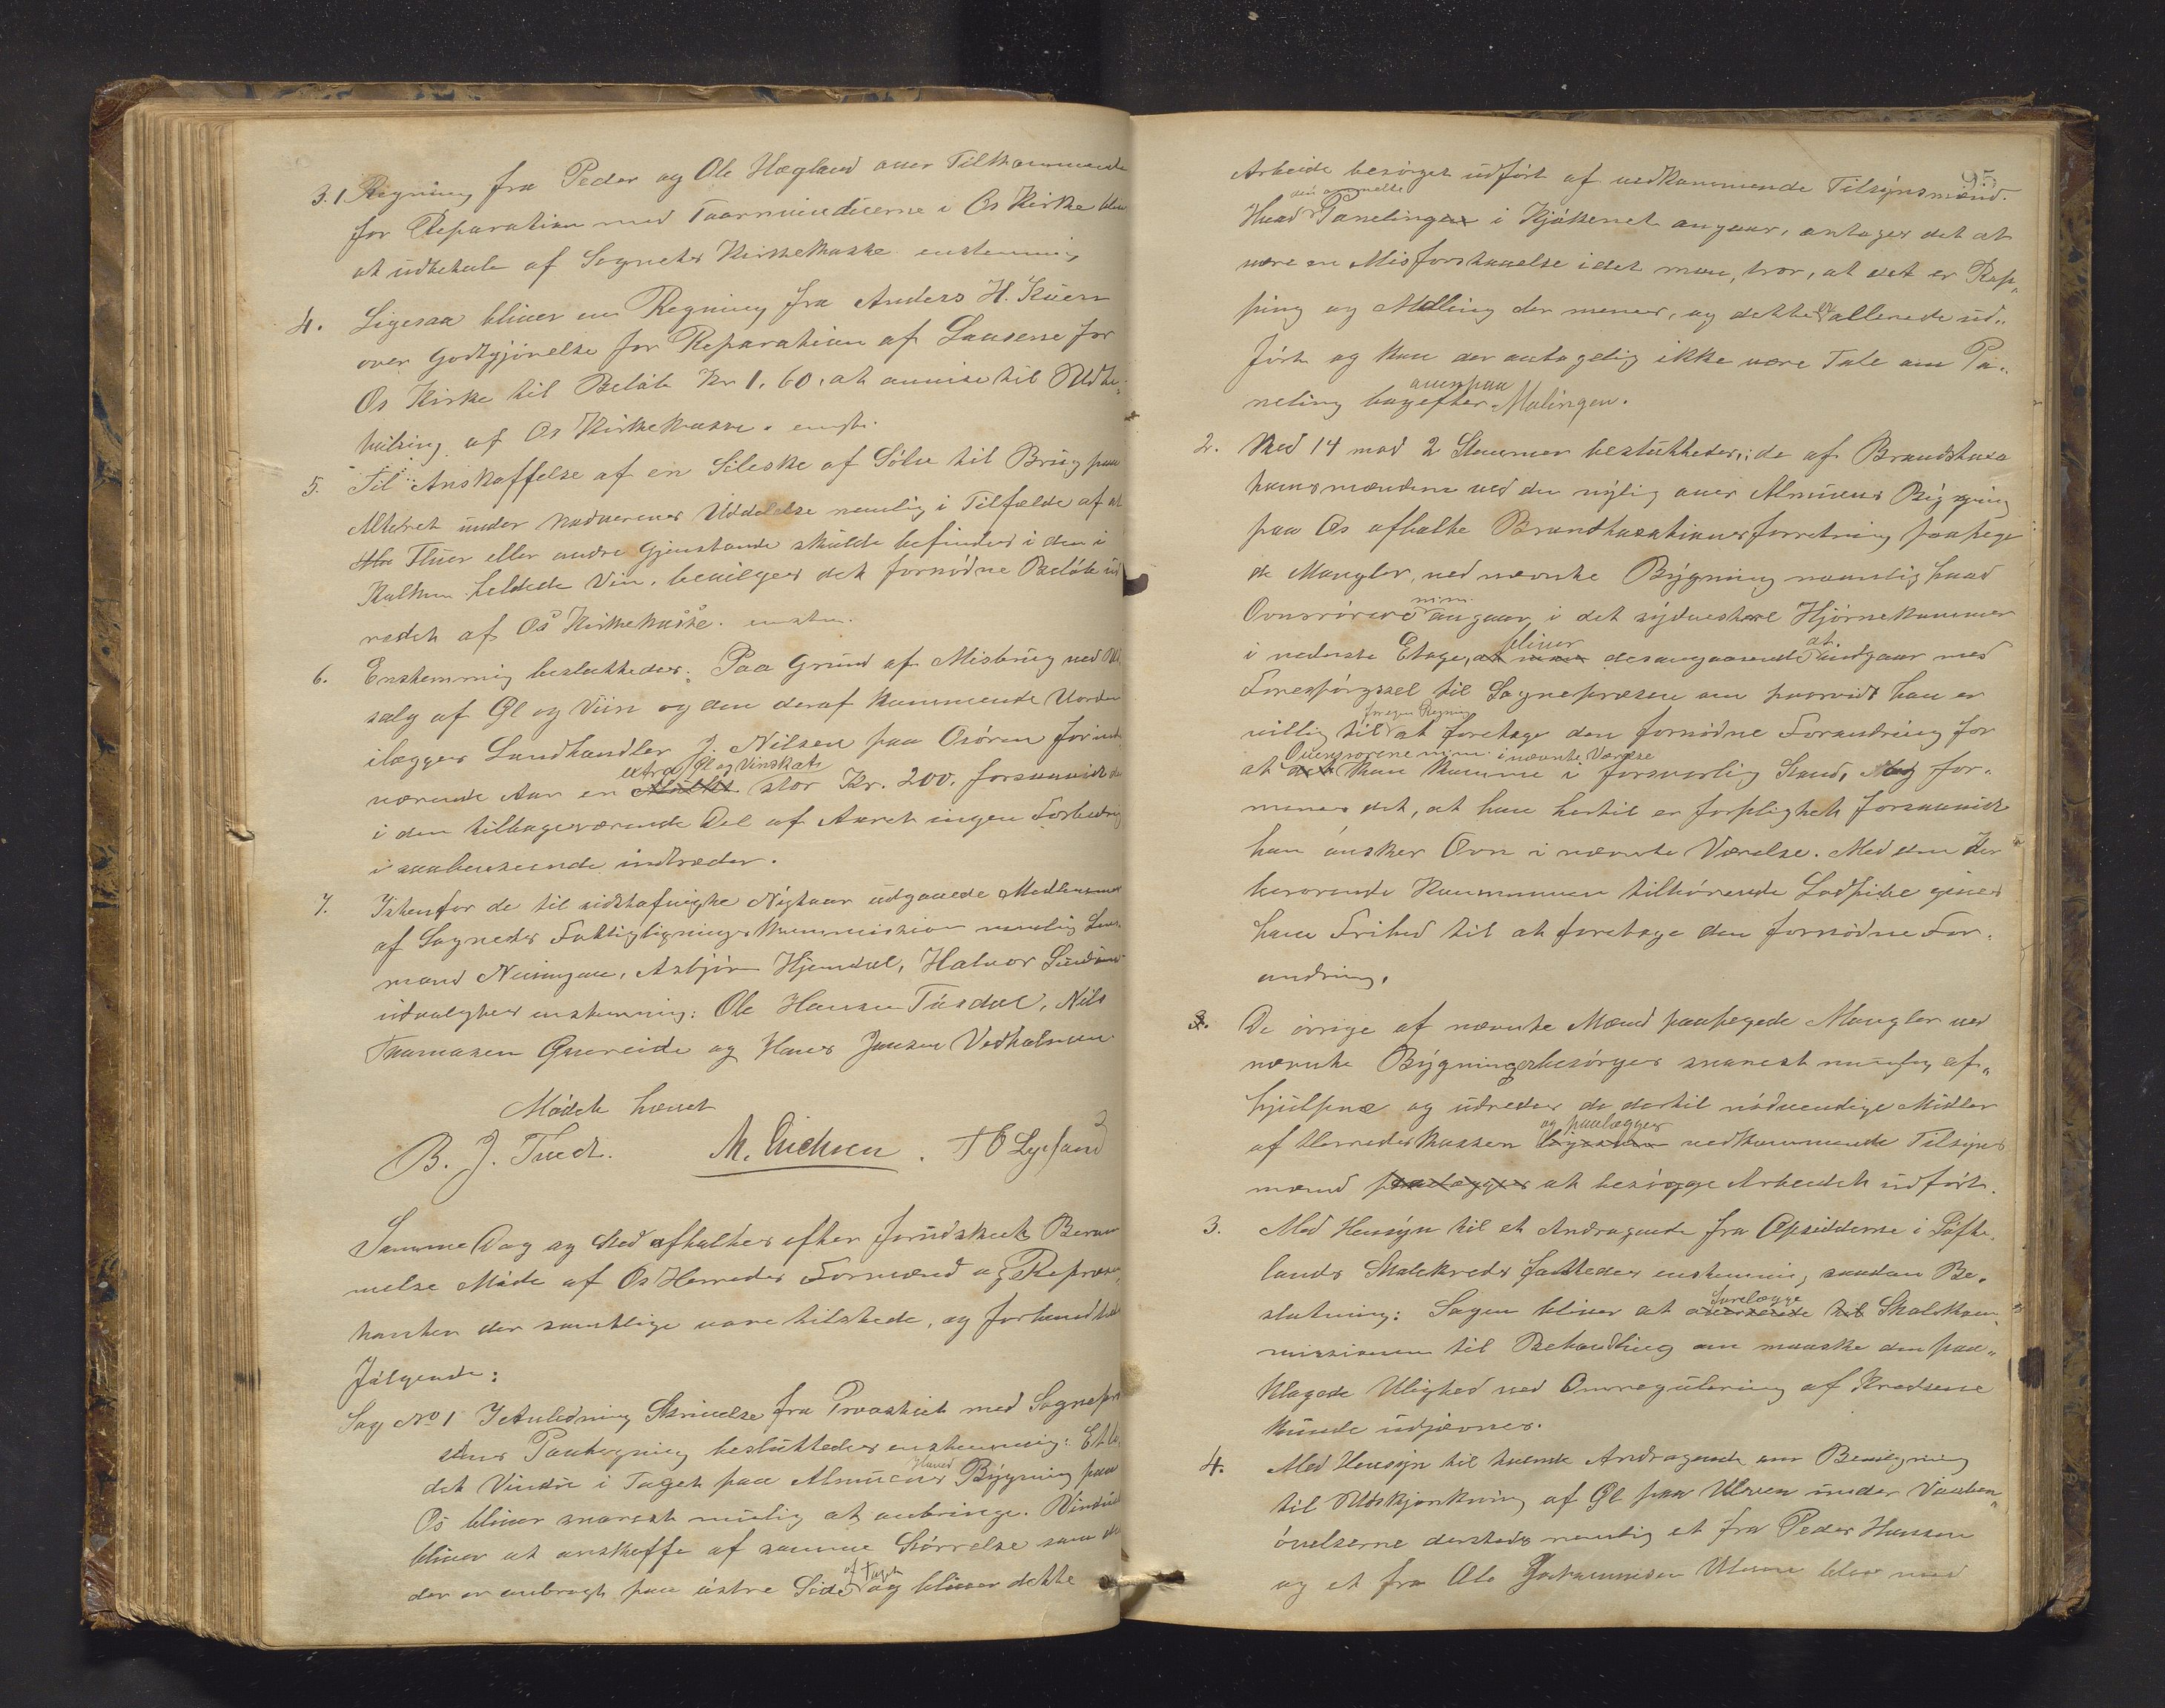 3. 1 Regning fra Peder og Ole Hegland over Tilkommende
for Reparation med Taarnvinduerne i Os Kirke blev
at udbetale af Sognets Kirkekasse enstemmig
4. Ligesaa bliver en Regning fra Anders H. Kuven
over Godtgjörelse for Reparation af Laasene for
Os Kirke til Belöb Kr 1,60, at anvise til Udbe-
taling af Os Kirkekasse. enst.
5. Til Anskaffelse af en Sileske af Sölv til Brug paa
Alteret under Nadverens Uddelelse nemlig i Tilfælde af at
Fluer eller andre Gjenstande skulde befindes i den i
Kalken heldede Vin, bevilges det fornödne Belöb ud
redet af Os Kirkekasse. enstem.
6. Enstemmig besluttedes: Paa Grund af Misbrug ved Ud
salg af Öl og Viin og den deraf kommende Uorden
ilægges Landhandler J. Nilsen paa Osören for inde
extra Öl og Vinskat
værende Aar en Mulkt stor Kr. 200, forsaavidt der
i den tilbageværende Del af Aaret ingen Forbedring
i saahenseende indtræder.
7. Istedenfor de til sidstafvigte Nytaar udgaaede Medlemmer
af Sognets Fattigligningskommission nemlig Lens-
mand Neumann, Asbjörn Hjemdal, Halvor
udvalgtes enstemmig: Ole Hansen Tösdal, Nils
Thomasen Qvereide og Hans Jansen Vedholmen.
Mödet hævet
B. J. Tveit. M. Erichsen. T O Lysand
Samme Dag og Sted afholdtes efter forudskeet Beram
melse Möde af Os Herreds Formænd og Repræsen-
tanter der samtlige vare tilstede, og forhandlede
fölgende:
Sag No 1 I Anledning Skrivelse fra Provstiet med Sognepræ
stens Paategning besluttedes enstemmig: Et
Hoved
det Vindu i Taget paa Almuens Bygning paa
Os bliver snarest mulig at anbringe. Vinduet
bliver at anskaffe af samme Störrelse som det
af Taget
der er anbragt paa östre Side og bliver dette
95
Arbeide besörget udfört af vedkommende Tilsynsmænd.
den anmeldte
Hvad Panelingen i Kjökkenet angaar, antages det at
være en Misforstaaelse idet man, tror, at det er Rap-
ping og Maling der menes, og dette er allerede ud-
fört og kan der antagelig ikke være Tale om Pa-
ovenpaa
neling bagefter Malingen.
2. Med 14 mod 2 Stemmer besluttedes: de af Brandtaxa
tionsmændene ved den nylig over Almuens Bygning
paa Os afholdte Brandtaxationsforretning paapege
de Mangler, ved nævnte Bygning nemlig hvad
m.m.
Ovnsrörene angaar, i det sydvestre Hjörnekammer
bliver at
i nederste Etage, at man desangaaende indgaar med
Forespörgsel til Sognepræsten om hvorvidt han er
for egen Regning
villig til at foretage den fornödne Forandring for
Ovensrörene m.m. i nævnte Værelse
at det kan komme i forsvarlig Stand, og for-
menes det, at han hertil er forpligtet forsaavidt
han önsker Ovn i nævnte Værelse. Med den der
beroende Kommunen tilhörende Lodpibe gives
ham Frihed til at foretage den fornödne For-
andring.
3. De övrige af nævnte Mænd paapegede Mangler ved
nævnte Bygning besörges snarest mulig af-
hjulpne og udredes de dertil nödvendige Midler
og paalægges
af Herredskassen ligesom vedkommende Tilsyns
mænd paalægges at besörge Arbeidet udfört.
3. Med Hensyn til et Andragende fra Opsidderne i Söfte-
lands Skolekreds fattedes enstemmig saadan Be-
forelægge
slutning: Sagen bliver at oversende til Skolekom-
missionen til Behandling om maaske den paa-
klagede Ulighed ved Omregulering af Kredsene
kunde udjævnes.
4. Med Hensyn til tvende Andragende om Bevilgning
til Udskjænkning af Öl paa Ulven under Vaaben-
övelserne dersteds nemlig et fra Peder Hansen
og et fra Ole Johannesen Ulven blev med